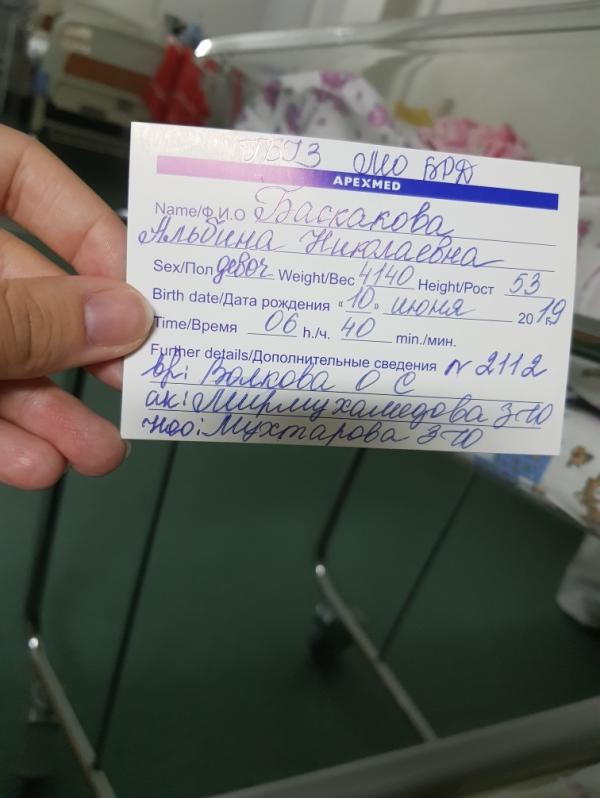 ГБУЗ МО БРД
APEXMED
Name/Ф.И.О Баскакова
Альбина Николаевна
Sex/Пол девоч Weight/Вес 4140 Height/Рост 53
Birth date/Дата рождения «10» июня 2019г.
Time/Время 06 h./ч. 40 min./мин.
Further details/Дополнительные сведения N 2112
вр: Волкова О С
ак: Мирмухамедова З-Ю
Мухтарова З-Ю